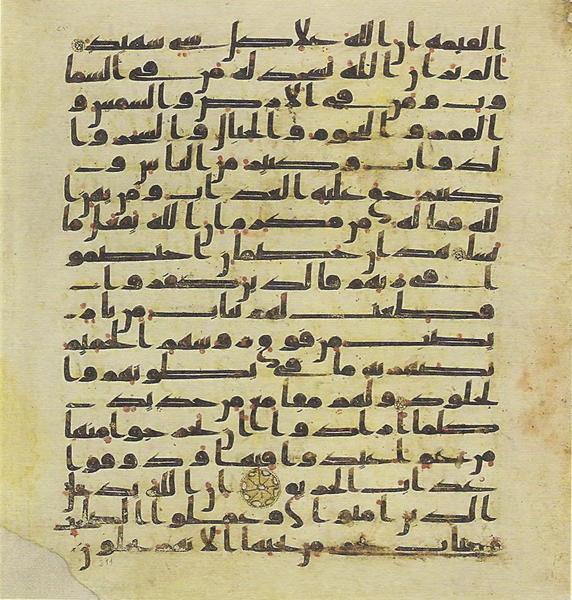 القيمة ان الله على كل شى شهيد
الم تر ان الله يسجد له من فى السما
وت ومن فى الارض والشمس و
القمر والنجوم والجبال والشجر وا
لدواب وكثير من الناس و
كثير حق عليه العذاب ومن يهن ا
لله فما له من مكرم ان الله يفعل ما
يشا هذان خصمان اختصمو
ا فى ربهم فالذين كفروا
قطعت لهم ثياب من نار
يصب من فوق روسهم الحميم
يصهر به ما فى بطونهم وا
لجلود ولهم مقامع من حديد
كلما ارادوا ان يخرجوا منها
من غم اعيدوا فيها وذوقوا
عذاب الحريق ان الله يدخل
الذين امنوا وعملوا الصلحت
جنات تجرى من تحتها الانهر يحلون